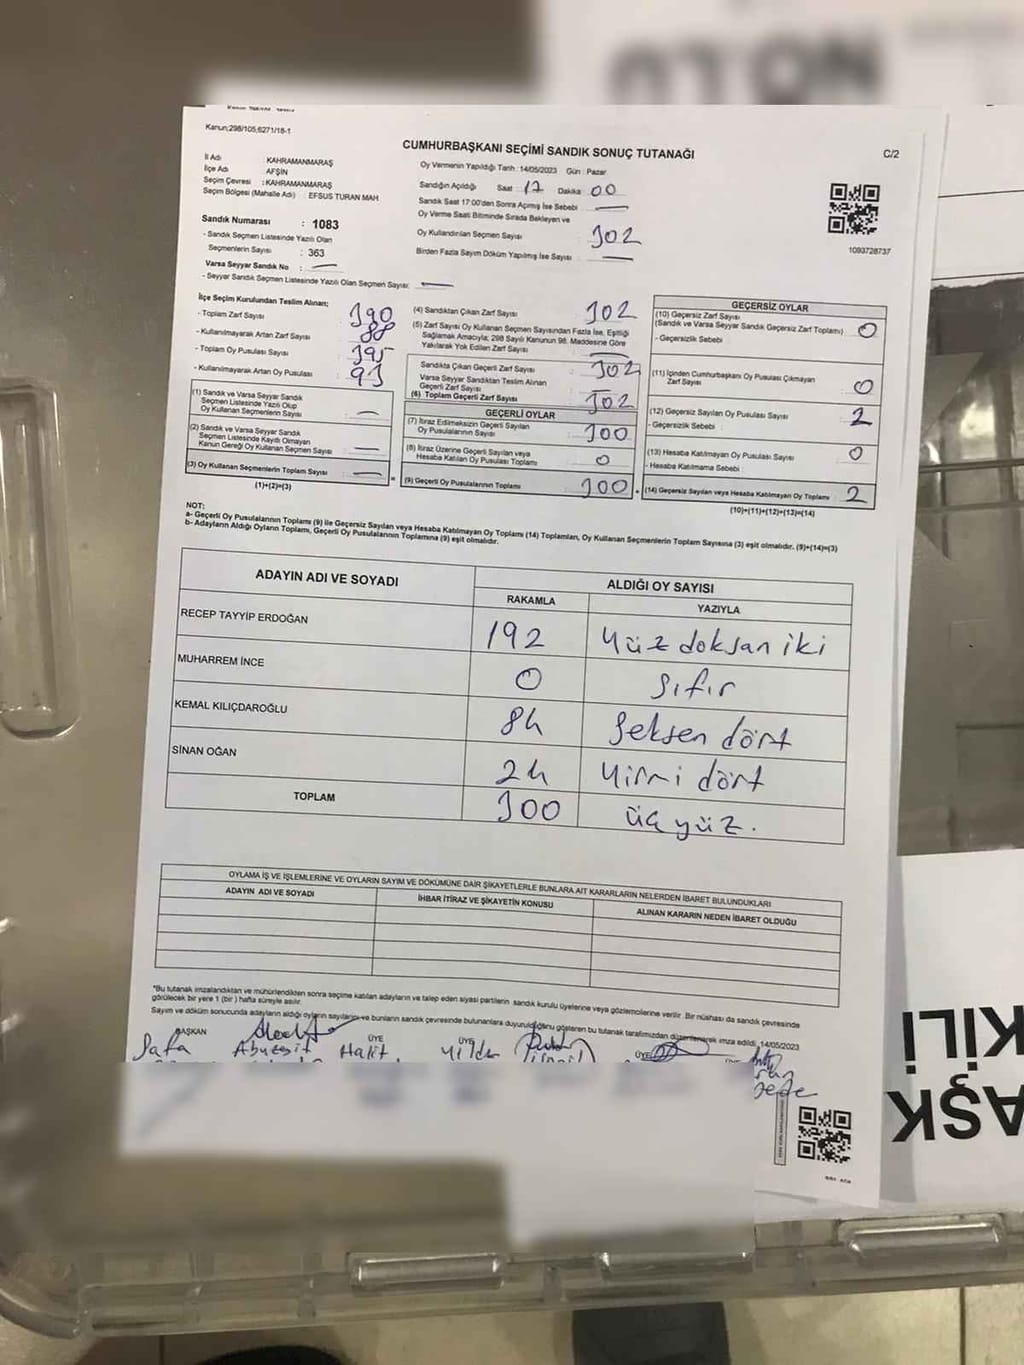 Kanun;298/105,6271/18-1
CUMHURBAŞKANI SEÇİMİ SANDIK SONUÇ TUTANAĞI
C/2
İl Adı : KAHRAMANMARAŞ
İlçe Adı : AFŞİN
Seçim Çevresi : KAHRAMANMARAŞ
Seçim Bölgesi (Mahalle Adı) : EFSUS TURAN MAH
Sandık Numarası : 1083
- Sandık Seçmen Listesinde Yazılı Olan
Seçmenlerin Sayısı : 363
Varsa Seyyar Sandık No : —
- Seyyar Sandık Seçmen Listesinde Yazılı Olan Seçmen Sayısı: —
Oy Vermenin Yapıldığı Tarih : 14/05/2023 Gün : Pazar
Sandığın Açıldığı Saat : 17 Dakika : 00
Sandık Saat 17:00'den Sonra Açımış İse Sebebi : —
Oy Verme Saati Bitiminde Sırada Bekleyen ve
Oy Kullandırılan Seçmen Sayısı : 302
Birden Fazla Sayım Döküm Yapılmış İse Sayısı : —
1093728737
İlçe Seçim Kurulundan Teslim Alınan;
- Toplam Zarf Sayısı : 390
- Kullanılmayarak Artan Zarf Sayısı : 88
- Toplam Oy Pusulası Sayısı : 395
- Kullanılmayarak Artan Oy Pusulası : 93
(1) Sandık ve Varsa Seyyar Sandık
Seçmen Listesinde Yazılı Olup
Oy Kullanan Seçmenlerin Sayısı : —
(2) Sandık ve Varsa Seyyar Sandık
Seçmen Listesinde Kayıtlı Olmayan
Kanun Gereği Oy Kullanan Seçmen Sayısı : —
(3) Oy Kullanan Seçmenlerin Toplam Sayısı : —
(1)+(2)=(3)
(4) Sandıktan Çıkan Zarf Sayısı : 302
(5) Zarf Sayısı Oy Kullanan Seçmen Sayısından Fazla İse, Eşitliği
Sağlamak Amacıyla; 298 Sayılı Kanunun 98. Maddesine Göre
Yakılarak Yok Edilen Zarf Sayısı : —
Sandıkta Çıkan Geçerli Zarf Sayısı : 302
Varsa Seyyar Sandıktan Teslim Alınan
Geçerli Zarf Sayısı :
(6) Toplam Geçerli Zarf Sayısı : 302
GEÇERLİ OYLAR
(7) İtiraz Edilmeksizin Geçerli Sayılan
Oy Pusulalarının Sayısı : 300
(8) İtiraz Üzerine Geçerli Sayılan veya
Hesaba Katılan Oy Pusulası Toplamı : 0
= (9) Geçerli Oy Pusulalarının Toplamı : 300
GEÇERSİZ OYLAR
(10) Geçersiz Zarf Sayısı
(Sandık ve Varsa Seyyar Sandık Geçersiz Zarf Toplamı) : 0
- Geçersizlik Sebebi :
(11) İçinden Cumhurbaşkanı Oy Pusulası Çıkmayan
Zarf Sayısı : 0
(12) Geçersiz Sayılan Oy Pusulası Sayısı : 2
- Geçersizlik Sebebi :
(13) Hesaba Katılmayan Oy Pusulası Sayısı : 0
- Hesaba Katılmama Sebebi :
+ (14) Geçersiz Sayılan veya Hesaba Katılmayan Oy Toplamı : 2
(10)+(11)+(12)+(13)=(14)
NOT:
a- Geçerli Oy Pusulalarının Toplamı (9) ile Geçersiz Sayılan veya Hesaba Katılmayan Oy Toplamı (14) Toplamları, Oy Kullanan Seçmenlerin Toplam Sayısına (3) eşit olmalıdır. (9)+(14)=(3)
b- Adayların Aldığı Oyların Toplamı, Geçerli Oy Pusulalarının Toplamına (9) eşit olmalıdır.
ADAYIN ADI VE SOYADI
ALDIĞI OY SAYISI
RAKAMLA YAZIYLA
RECEP TAYYİP ERDOĞAN 192 Yüz doksan iki
MUHARREM İNCE 0 Sıfır
KEMAL KILIÇDAROĞLU 84 Seksen dört
SİNAN OĞAN 24 Yirmi dört
TOPLAM 300 üç yüz.
OYLAMA İŞ VE İŞLEMLERİNE VE OYLARIN SAYIM VE DÖKÜMÜNE DAİR ŞİKAYETLERLE BUNLARA AİT KARARLARIN NELERDEN İBARET BULUNDUKLARI
ADAYIN ADI VE SOYADI İHBAR İTİRAZ VE ŞİKAYETİN KONUSU ALINAN KARARIN NEDEN İBARET OLDUĞU
*Bu tutanak imzalandıktan ve mühürlendikten sonra seçime katılan adayların ve talep eden siyasi partilerin sandık kurulu üyelerine veya gözlemcilerine verilir. Bir nüshası da sandık çevresinde
görülecek bir yere 1 (bir) hafta süreyle asılır.
Sayım ve döküm sonucunda adayların aldığı oyların sayılarını ve bunların sandık çevresinde bulunanlara duyurulduğunu gösteren bu tutanak tarafımızdan düzenlenerek imza edildi. 14/05/2023
BAŞKAN ÜYE ÜYE ÜYE
Safa Abuzait Halit Yıldız İsmail